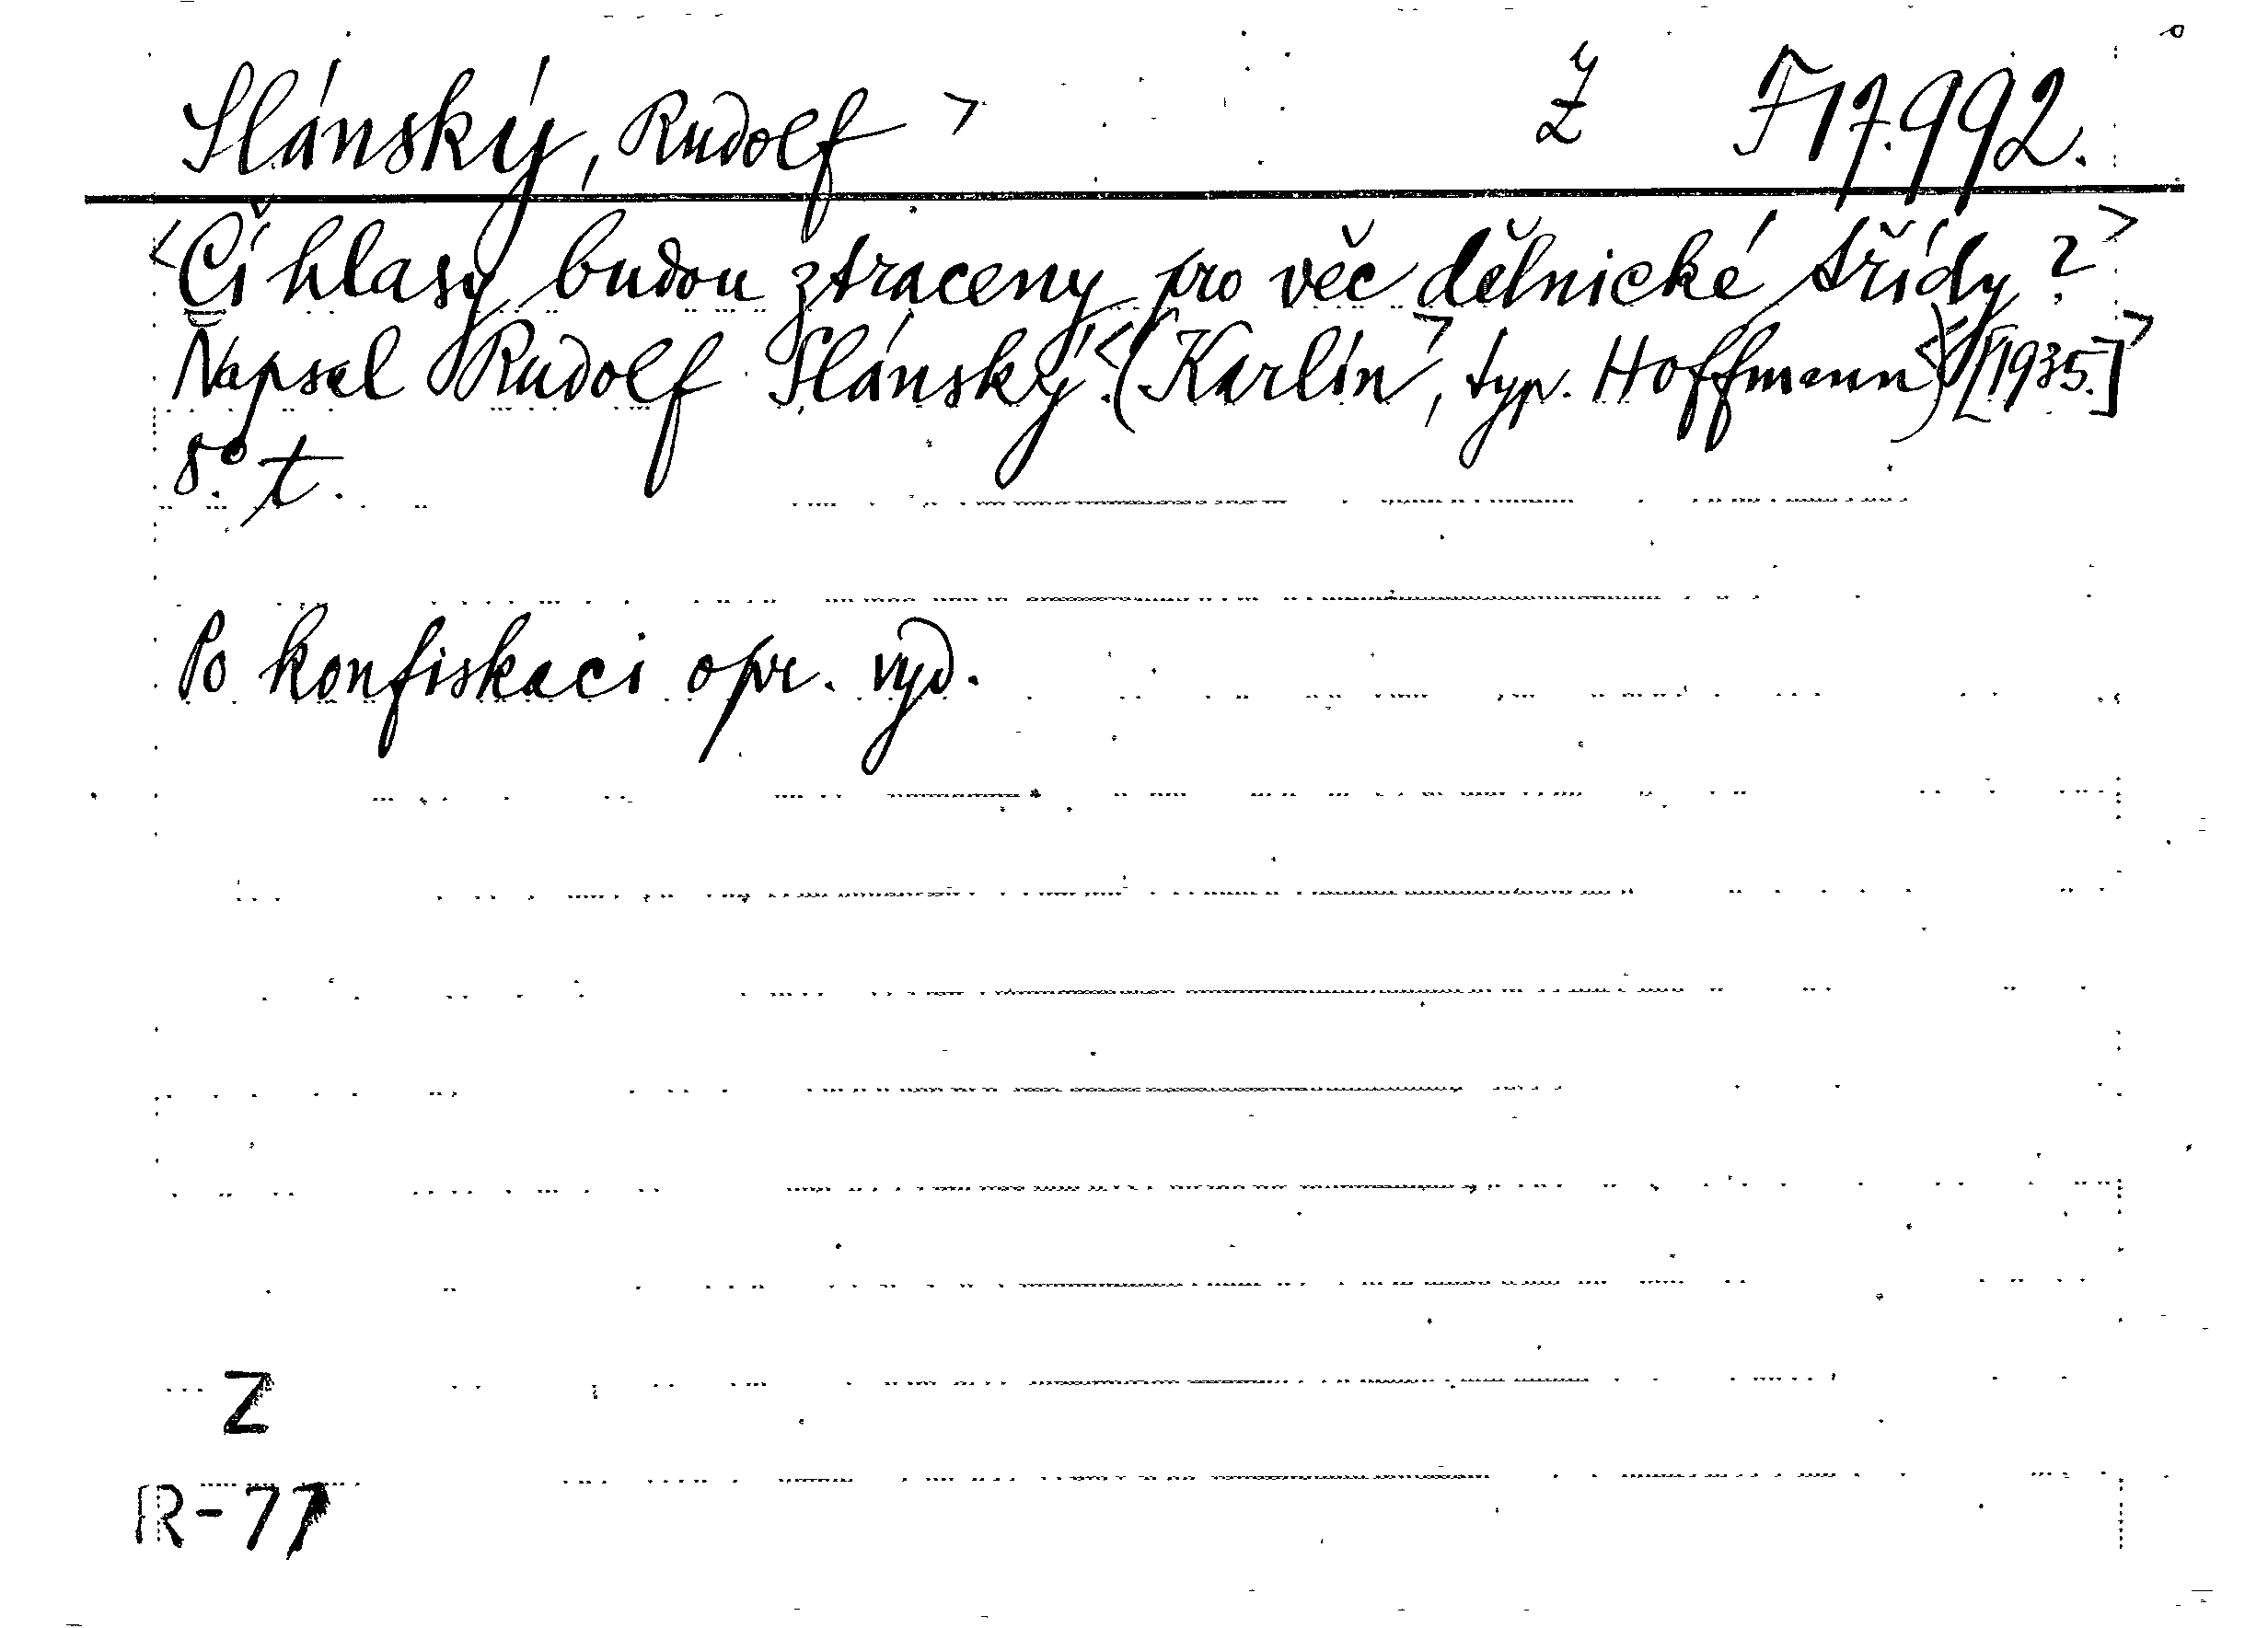 Slánský, Rudolf > Ž F 17.992.
<Čí hlasy budou ztraceny pro věc dělnické třídy?>
Napsal Rudolf Slánský.<(Karlín>, typ. Hoffmann)<[1935.]>
8°. t.
Po konfiskaci opr. vyd.
Z
R-77